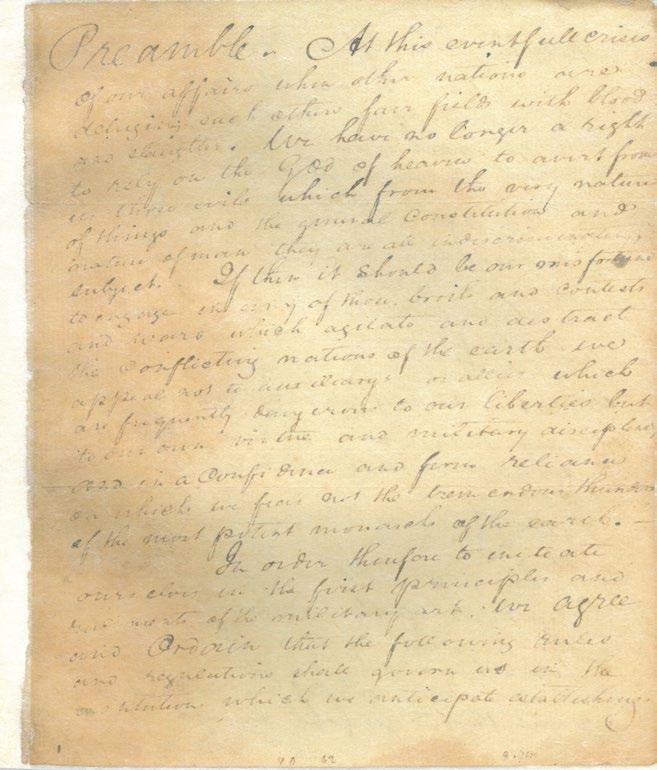 Preamble. At this eventfull crisis
of our affairs when other nations are
deluging each others fair fields with blood
and slaughter. We have no longer a right
to rely on the God of heaven to avert from
us those evils which from the very nature
of things and the general Constitution and
nature of man they are all indiscriminately
subject. If then it should be our misfortune
to engage in any of those broils and contests
and wars which agitate and distract
the conflicting nations of the earth we
appeal not to auxiliarys or allies which
are frequently dangerous to our liberties but
to our own virtue and military discipline,
and in a confidence and firm reliance
on which we fear not the tremendous thunders
of the most potent monarchs of the earth. —
In order therefore to initiate
ourselves in the first principles and
rudiments of the military art. We agree
and Ordain that the following rules
and regulations shall govern us in the
institution which we anticipate establishing.